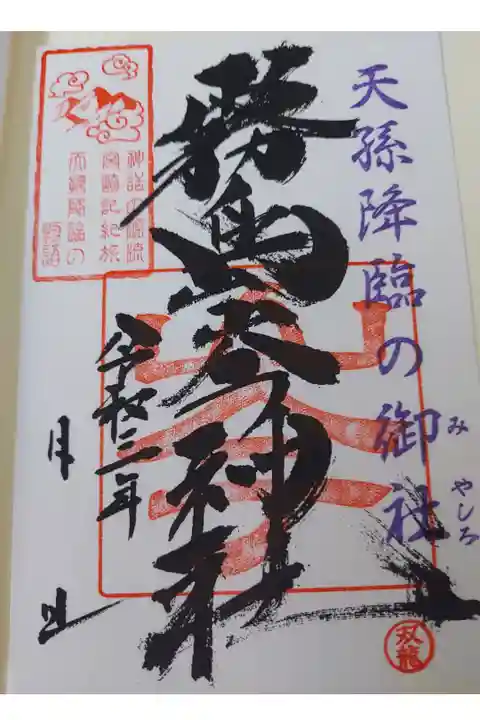 天孫降臨の御社
みやしろ
霧島岑神社
令和三年
月 日
神話の源流
宮崎記紀旅
天孫降臨の
物語
双龍